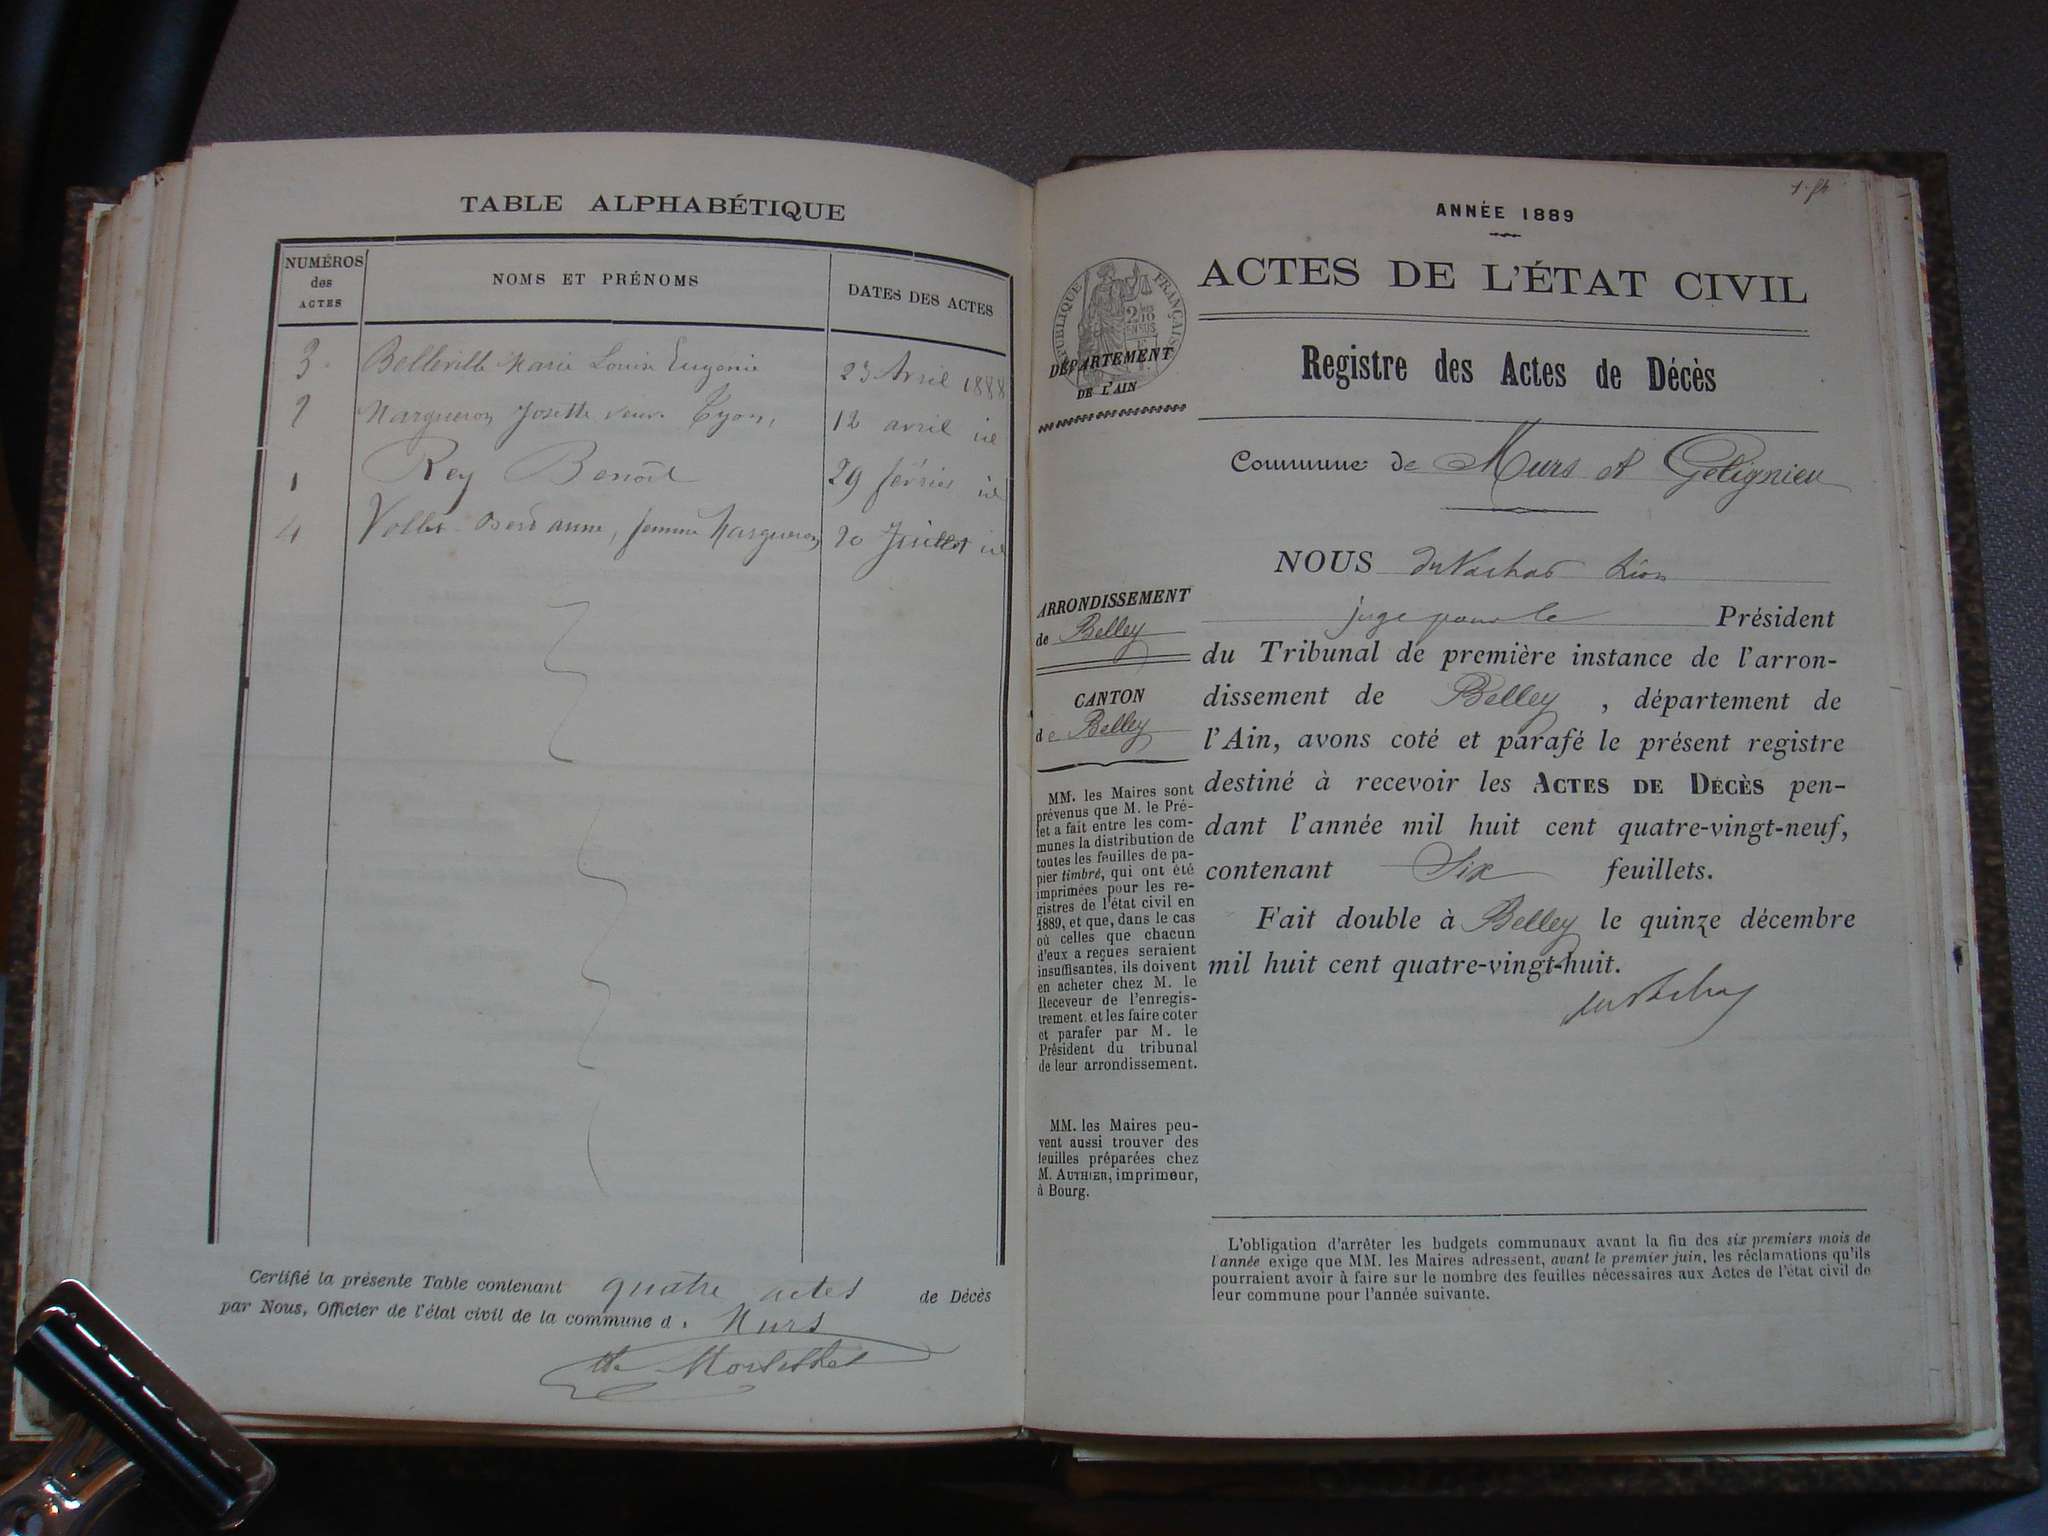 TABLE ALPHABÉTIQUE
NUMÉROS des ACTES
NOMS ET PRÉNOMS
DATES DES ACTES
3. Belleville Marie Louise Eugenie 23 Avril 1888
2 Margueron Josette veuve Tyon, 12 avril id
1 Rey Benoît 29 février id
4 anne, femme Margueron 20 Juillet id
Certifié la présente Table contenant quatre actes de Décès
par Nous, Officier de l'état civil de la commune d. Murs
ANNÉE 1889
ACTES DE L'ÉTAT CIVIL
RÉPUBLIQUE FRANÇAISE
DÉPARTEMENT
DE L'AIN
Registre des Actes de Décès
Commune de Murs et Gélignieu
ARRONDISSEMENT
de Belley
CANTON
de Belley
MM. les Maires sont
prévenus que M. le Pré-
fet a fait entre les com-
munes la distribution de
toutes les feuilles de pa-
pier timbré, qui ont été
imprimées pour les re-
gistres de l'état civil en
1889, et que, dans le cas
où celles que chacun
d'eux a reçues seraient
insuffisantes, ils doivent
en acheter chez M. le
Receveur de l'enregis-
trement et les faire coter
et parafer par M. le
Président du tribunal
de leur arrondissement.
MM. les Maires peu-
vent aussi trouver des
feuilles préparées chez
M. AUTHIER, imprimeur,
à Bourg.
NOUS
juge pour le Président
du Tribunal de première instance de l'arron-
dissement de Belley, département de
l'Ain, avons coté et parafé le présent registre
destiné à recevoir les ACTES DE DÉCÈS pen-
dant l'année mil huit cent quatre-vingt-neuf,
contenant Six feuillets.
Fait double à Belley le quinze décembre
mil huit cent quatre-vingt-huit.
L'obligation d'arrêter les budgets communaux avant la fin des six premiers mois de
l'année exige que MM. les Maires adressent, avant le premier juin, les réclamations qu'ils
pourraient avoir à faire sur le nombre des feuilles nécessaires aux Actes de l'état civil de
leur commune pour l'année suivante.